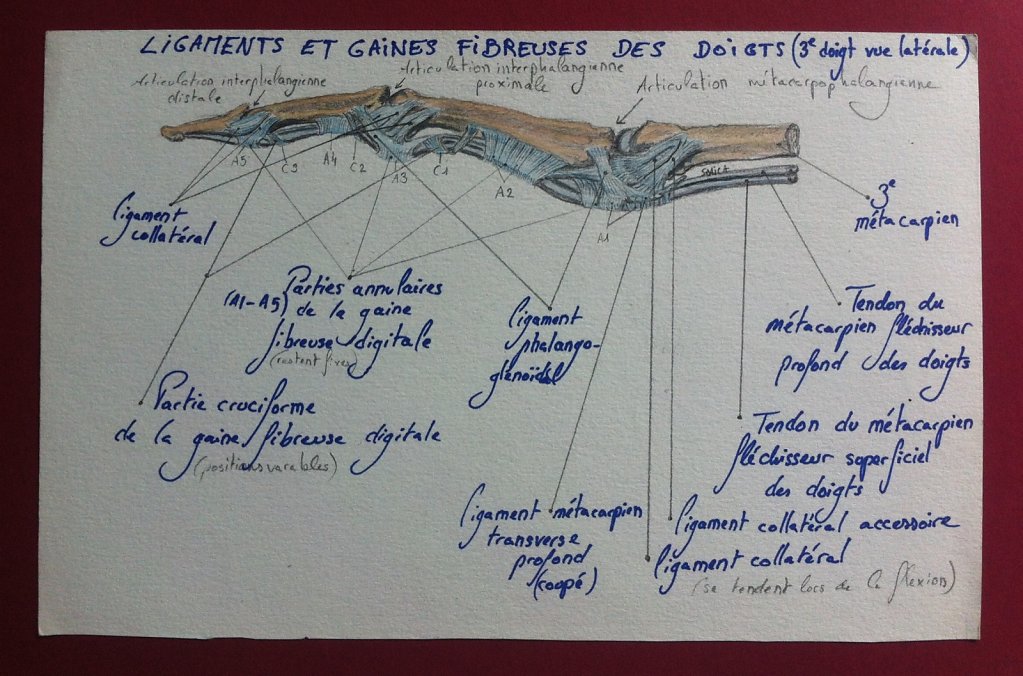 LIGAMENTS ET GAINES FIBREUSES DES DOIGTS (3e doigt vue latérale)
Articulation interphalangienne
distale
Articulation interphalangienne
proximale
Articulation métacarpophalangienne
A5
C3
A4
C2
A3
C1
A2
A1
ligament
collatéral
3e
métacarpien
Parties annulaires
(A1-A5) de la gaine
fibreuse digitale
(restent fixes)
ligament
phalango-
glénoïdal
Tendon du
métacarpien fléchisseur
profond des doigts
Partie cruciforme
de la gaine fibreuse digitale
(positions varables)
Tendon du métacarpien
fléchisseur superficiel
des doigts
ligament métacarpien
transverse
profond
(coupé)
ligament collatéral accessoire
ligament collatéral
(se tendent lors de la flexion)